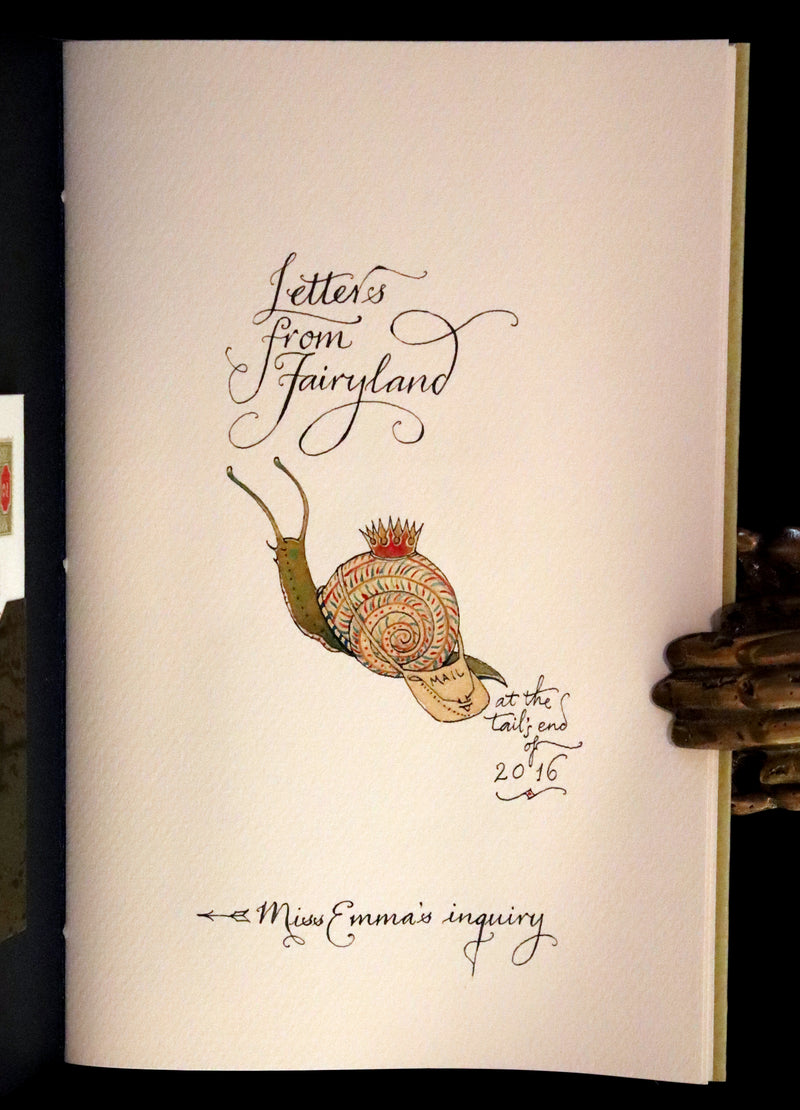 Letters
from
Fairyland
MAIL
at the
tail's end
of
2016
Miss Emma's inquiry